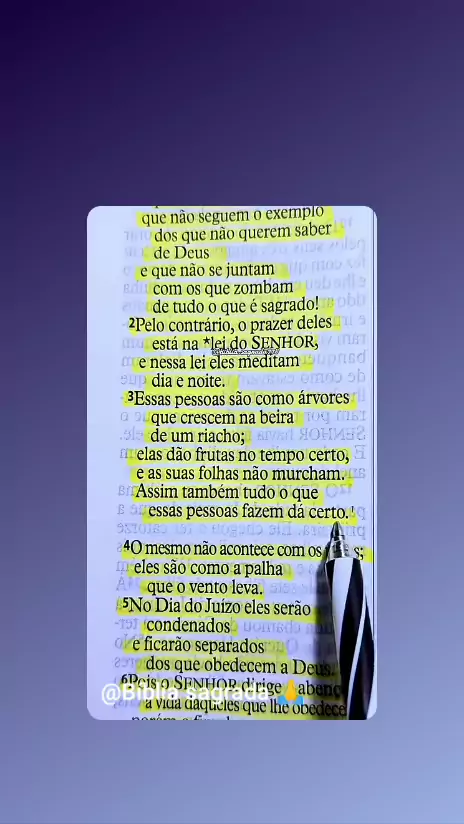 que não seguem o exemplo
dos que não querem saber
de Deus
e que não se juntam
com os que zombam
de tudo o que é sagrado!
2Pelo contrário, o prazer deles
está na *lei do SENHOR,
e nessa lei eles meditam
dia e noite.
3Essas pessoas são como árvores
que crescem na beira
de um riacho;
elas dão frutas no tempo certo,
e as suas folhas não murcham.
Assim também tudo o que
essas pessoas fazem dá certo.
4O mesmo não acontece com os
eles são como a palha
que o vento leva.
5No Dia do Juízo eles serão
condenados
e ficarão separados
dos que obedecem a Deus.
6Pois o SENHOR dirige
@Biblia sagrada 🙏
a vida daqueles que lhe obedece